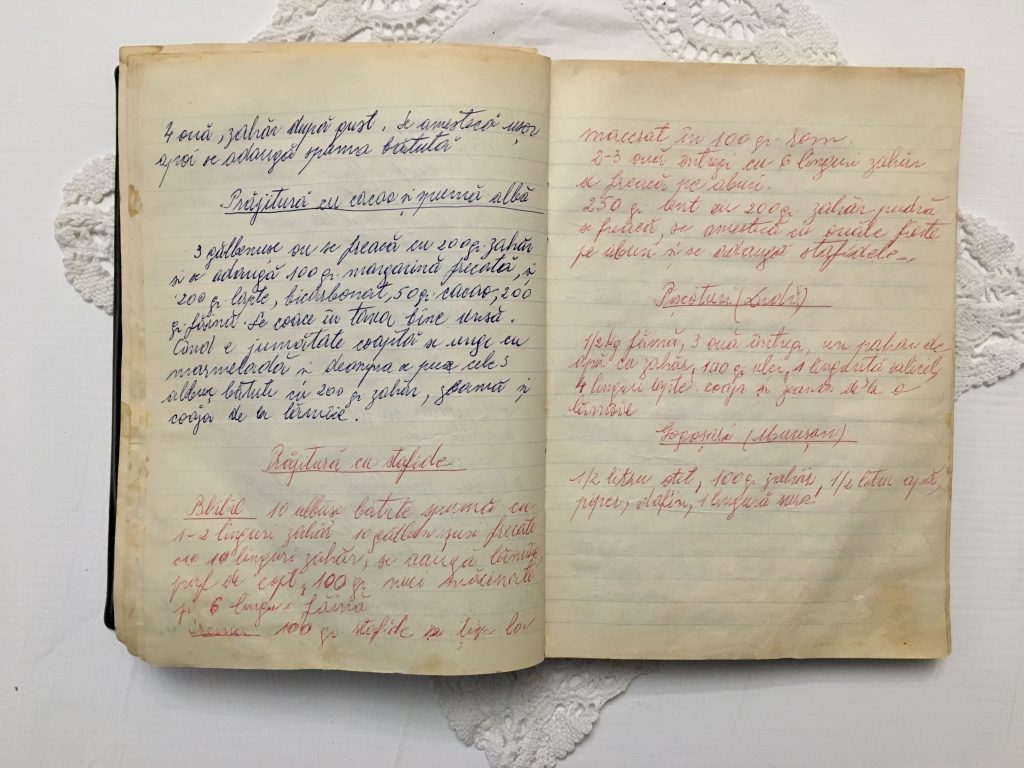 4 ouă, zahăr după gust. Se amestecă ușor
apoi se adaugă spuma bătută
Prăjitură cu cacao și spumă albă
3 gălbenușe ou se freacă cu 200 gr. zahăr
și se adaugă 100 gr. margarină frecată, și
200 gr. lapte, bicarbonat, 50 gr. cacao, 200
gr. făină. Se coace în tava bine unsă.
Când e jumătate coaptă se unge cu
marmeladă și deasupra se pune cele 3
albușe bătute cu 200 gr. zahăr, zeamă și
coaja de la lămâie.
Prăjitură cu stafide
10 albușe bătute spumă cu
1-2 linguri zahăr 10 gălbenușuri frecate
cu 10 linguri zahăr, se adaugă lămâie
praf de copt, 100 gr. nuci măcinate
și 6 linguri făină
Crema 100 gr. stafide se țin la
macerat în 100 gr. Rom.
2-3 ouă întregi cu 6 linguri zahăr
se freacă pe aburi.
250 gr. unt cu 200 gr. zahăr pudră
se freacă, se amestecă cu ouăle fierte
pe aburi și se adaugă stafidele.
Pișcoturi
1/2 kg făină, 3 ouă întregi, un pahar de
apă cu zahăr, 100 gr. ulei, 1 linguriță salicil
4 linguri lapte coaja și zeama de la o
lămâie
(Mureșan)
1/2 litru oțet, 100 gr. zahăr, 1/2 litru apă,
piper, dafin, 1 lingură sare